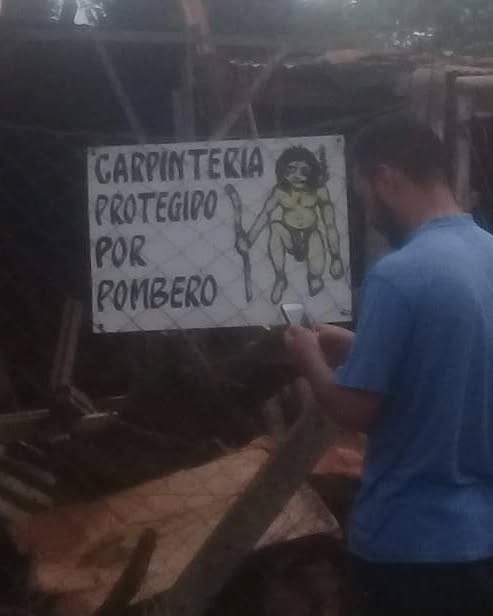 CARPINTERIA
PROTEGIDO
POR
POMBERO